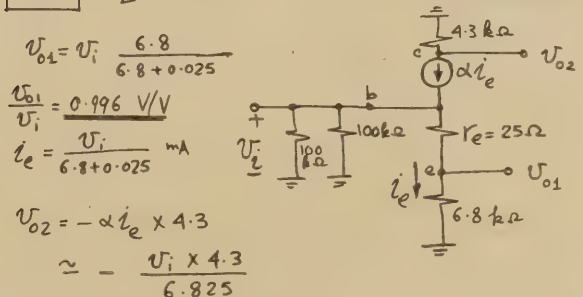 v_o1 = v_i 6.8 / 6.8 + 0.025
v_o1 / v_i = 0.996 V/V
i_e = v_i / 6.8 + 0.025 mA
v_o2 = - α i_e × 4.3
≃ - v_i × 4.3 / 6.825
4.3 kΩ
c
v_o2
αi_e
b
+
v_i
100 kΩ
100kΩ
r_e = 25Ω
e
v_o1
i_e
6.8 kΩ